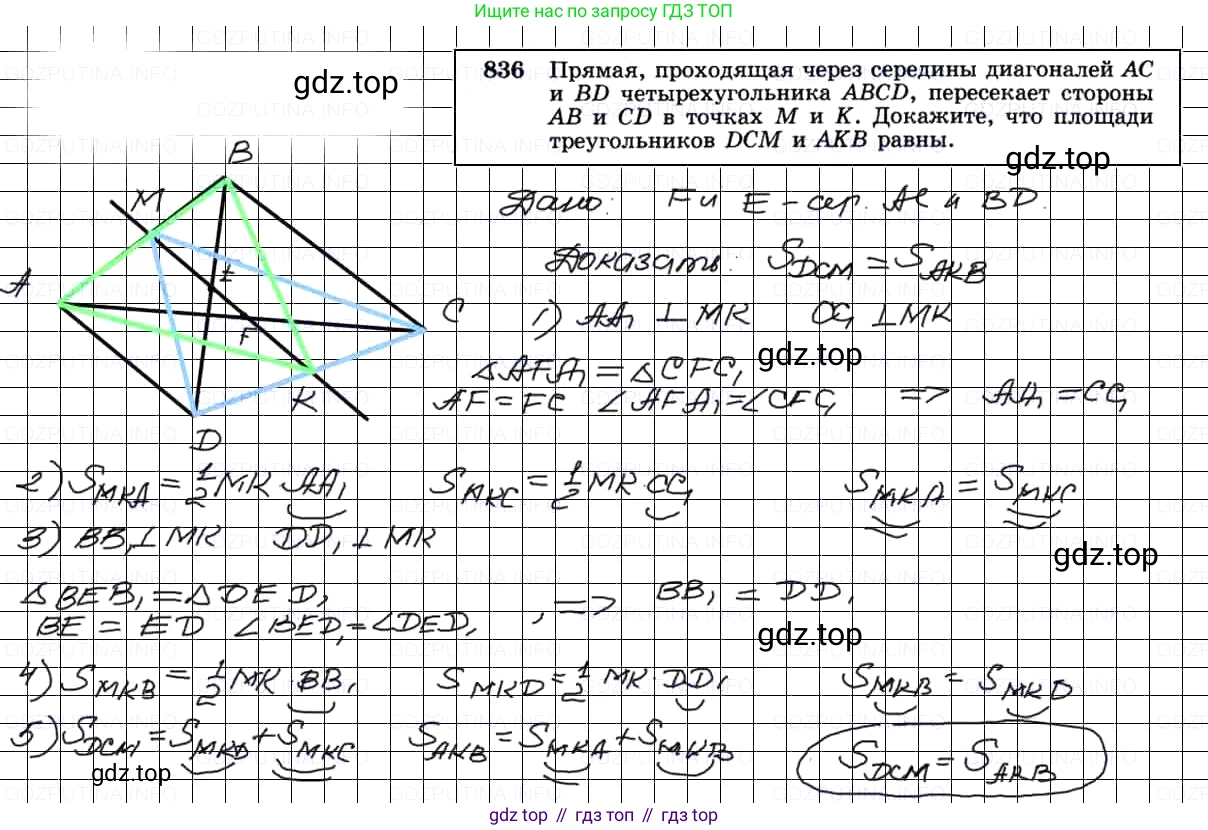 Ищите нас по запросу ГДЗ ТОП
gdz.top
836 Прямая, проходящая через середины диагоналей AC
и BD четырехугольника ABCD, пересекает стороны
AB и CD в точках M и K. Докажите, что площади
треугольников DCM и AKB равны.
gdz.top
B
M
A
E
C
F
K
D
Дано: F и E - сер. AC и BD.
Доказать: S_DCM = S_AKB
1) AA₁ ⊥ MK CC₁ ⊥ MK
gdz.top
△AFA₁ = △CFC₁
AF = FC ∠AFA₁ = ∠CFC₁ => AA₁ = CC₁
2) S_MKA = 1/2 MK · AA₁ S_MKC = 1/2 MK · CC₁ S_MKA = S_MKC
3) BB₁ ⊥ MK DD₁ ⊥ MK
gdz.top
△BEB₁ = △DED₁, => BB₁ = DD₁
BE = ED ∠BED₁ = ∠DED₁
gdz.top
4) S_MKB = 1/2 MK · BB₁ S_MKD = 1/2 MK · DD₁ S_MKB = S_MKD
5) S_DCM = S_MKD + S_MKC S_AKB = S_MKA + S_MKB S_DCM = S_AKB
gdz.top
gdz топ // гдз топ // гдз.top